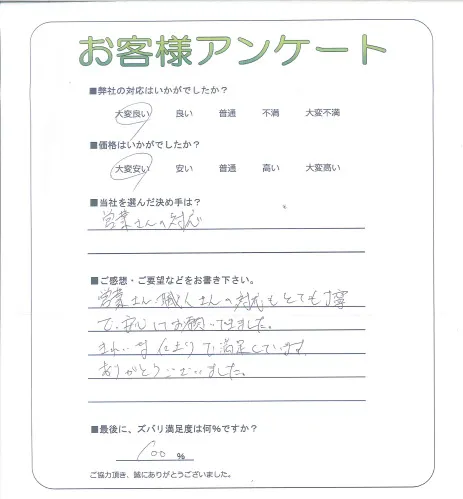 お客様アンケート
■弊社の対応はいかがでしたか？
大変良い 良い 普通 不満 大変不満
■価格はいかがでしたか？
大変安い 安い 普通 高い 大変高い
■当社を選んだ決め手は？
営業さんの対応
■ご感想・ご要望などをお書き下さい。
営業さん、職人さんの対応もとても丁寧
で、安心してお願いできました。
きれいな仕上りで満足しています。
ありがとうございました。
■最後に、ズバリ満足度は何％ですか？
100 ％
ご協力頂き、誠にありがとうございました。